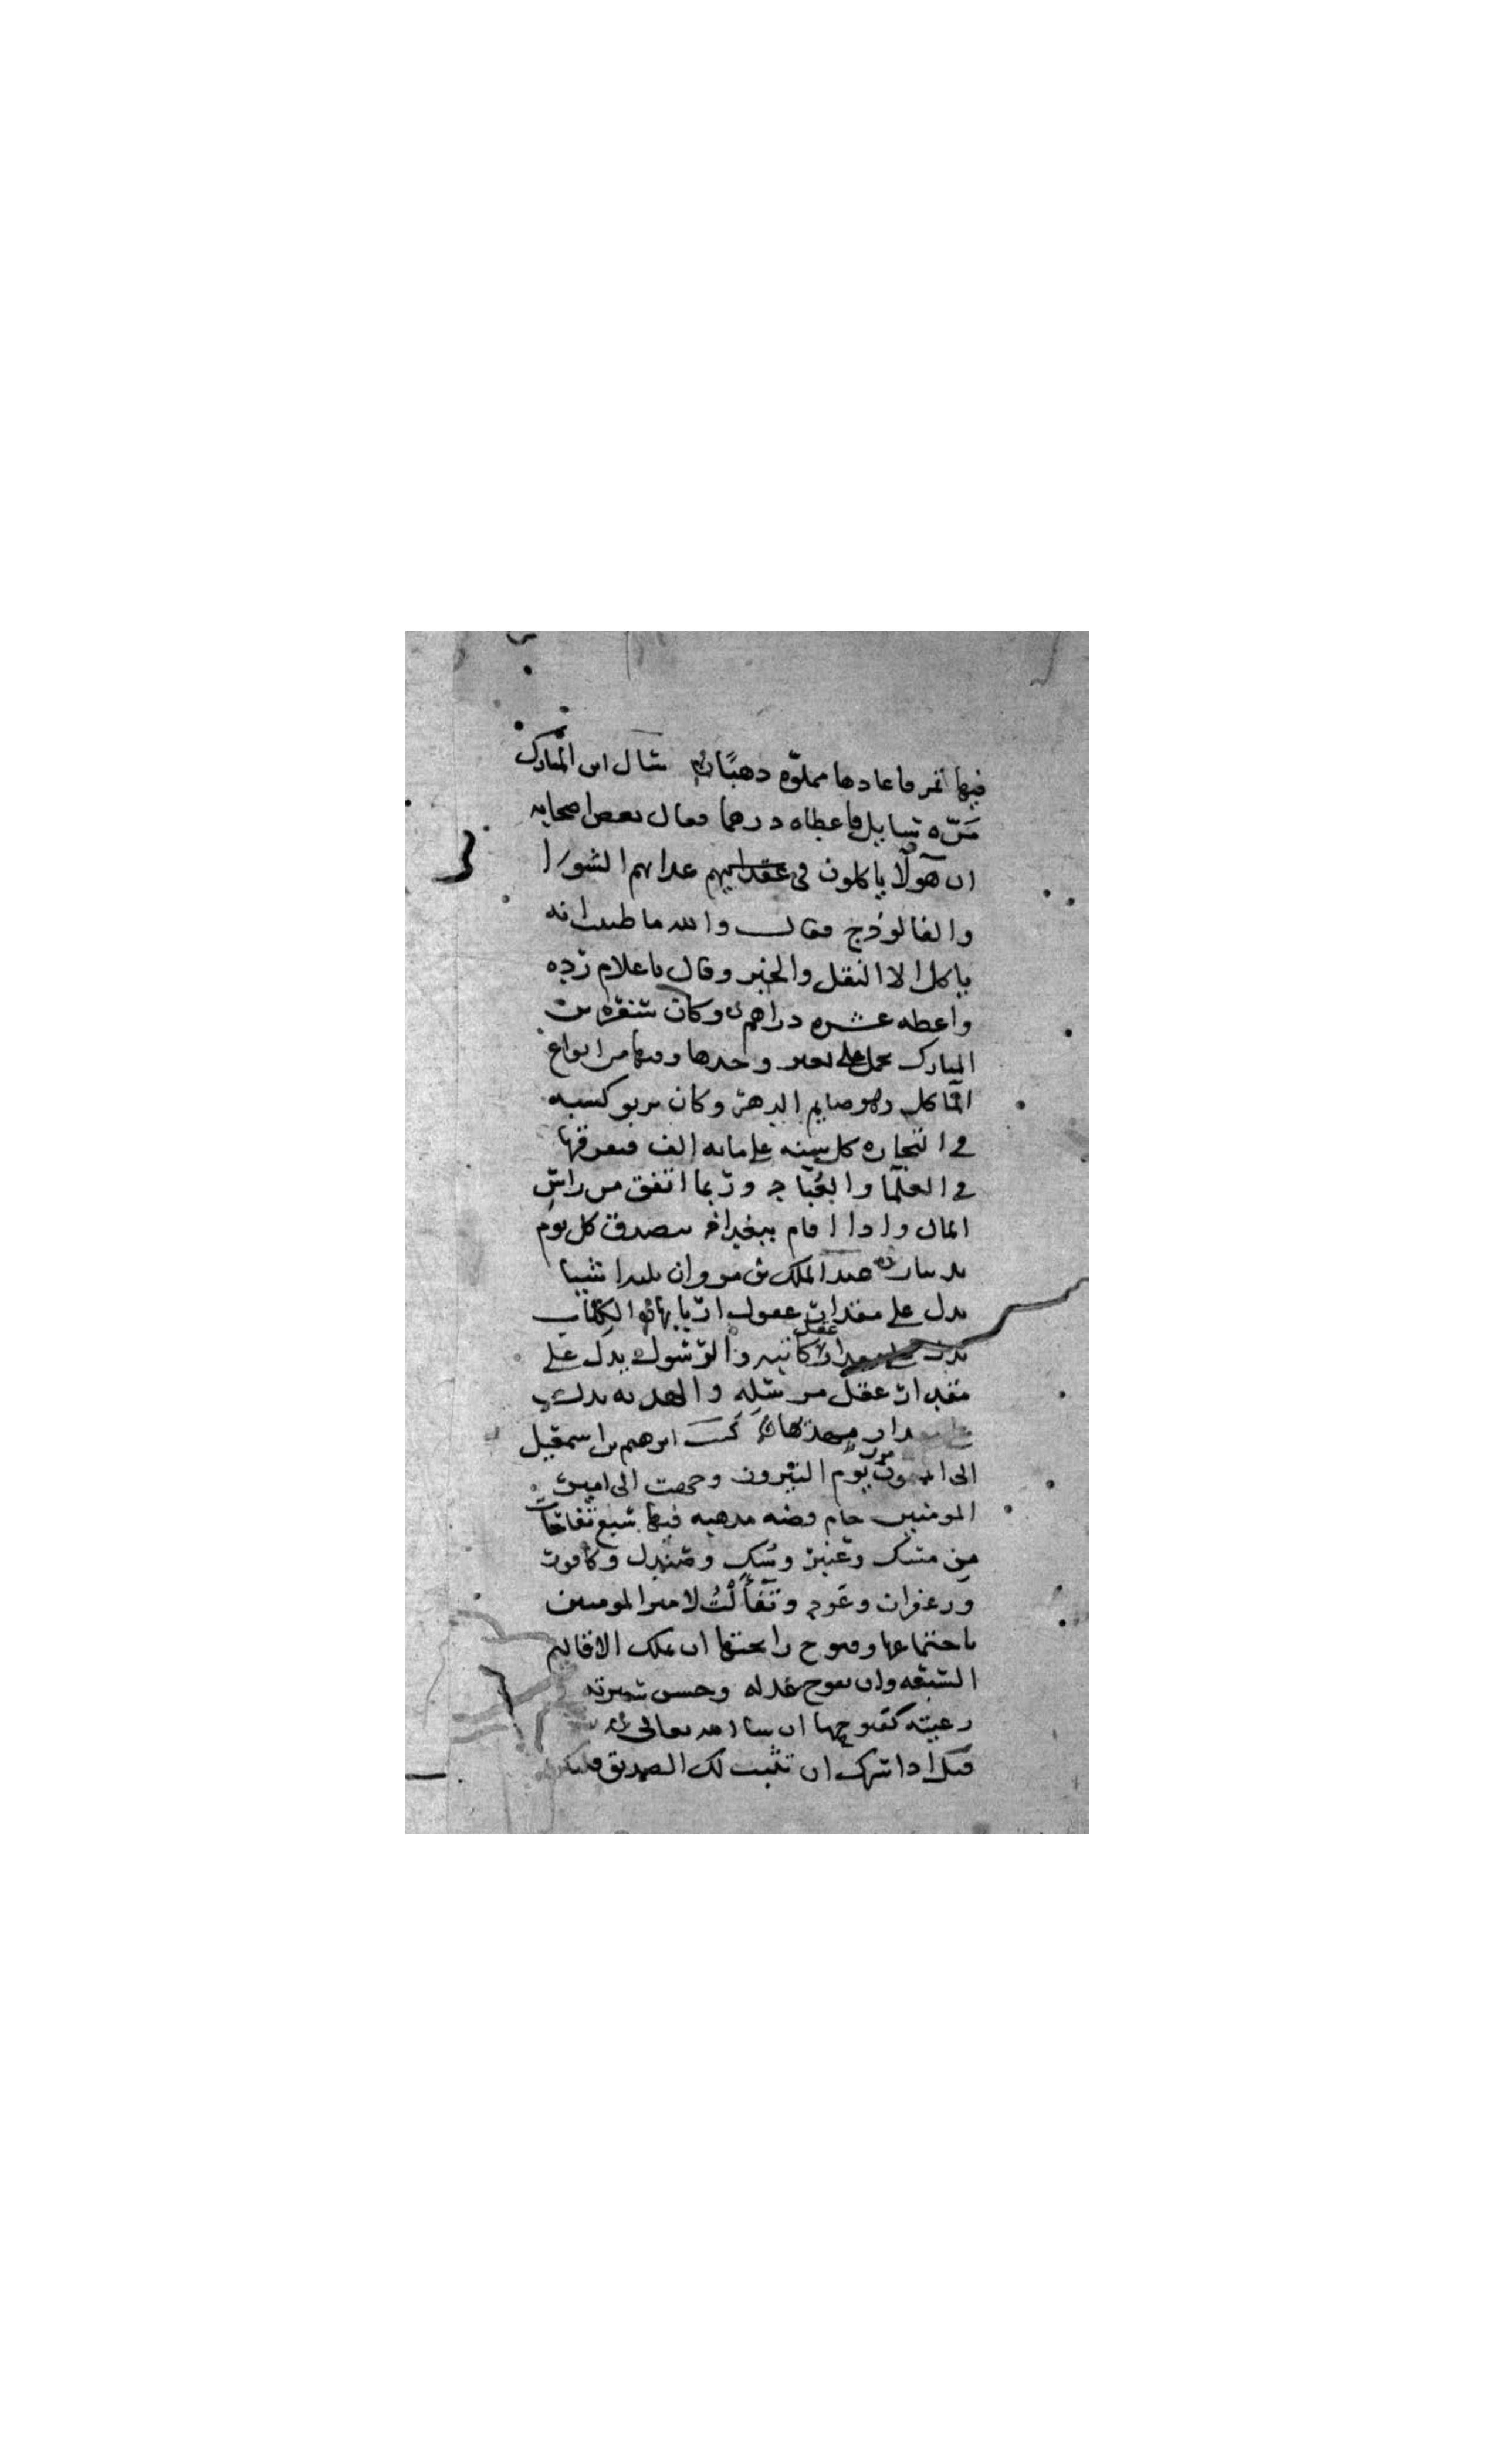 فيها تمر فاعادها مملوّه ذهبًا سال ابن المبارك
مرّه سايل فاعطاه درهما فقال بعض اصحابه
ان هولا ياكلون في غدايهم الشوا
والفالوذج فقال والله ما ظننت انه
ياكل الا البقل والخبز وقال يا غلام رده
واعطه عشره دراهم وكان سفره بن
المبارك تحمل على بعير وحدها وفيها من انواع
الماكل وهو صايم الدهر وكان يربو كسبه
في التجاره كل سنه على مايه الف فيفرقها
في العلما والعباد وربما انفق من راس
المال واذا اقام ببغداد يتصدق كل يوم
بدينار عبد الملك بن مروان ثلثه اشيا
يدل على مقدار عقول اربابها الكتاب
يدل على مقدار عقل كاتبه والرسول يدل على
مقدار عقل مرسله والهديه يدل
على مقدار مهديها كتب ابرهيم بن اسمعيل
الى المامون يوم النيروز وجهت الى امير
المومنين جام فضه مذهبه فيها سبع تفاحات
من مسك وعنبر وسك وصندل وكافور
وزعفران وعود وتفألت لامير المومنين
باجتماعها وفوح رايحتها ان يملك الاقاليم
السبعه وان يفوح عدله وحسن سيرته في
رعيته كفوحها ان شا الله تعالى
قيل اذا سرك ان تثبت لك الصديق فليكن